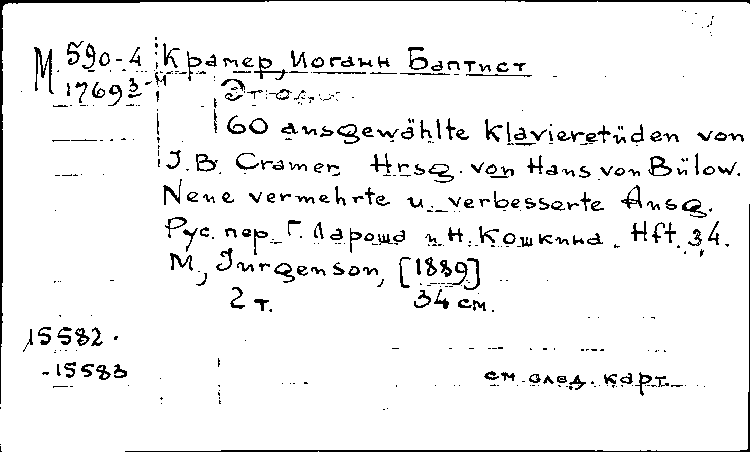 М 590-4 Крамер, Иоганн Баптист
17693 Этюды
60 ausgewählte Klavieretüden von
J. B. Cramer. Hrsg. von Hans von Bülow.
Neue vermehrte u. verbesserte Ausg.
Рус. пер. Г. Лароша и Н. Кошкина. Hft. 3,4.
М., Jurgenson, [1889]
2 т. 34 см.
15582.
-15583
см. след. карт.